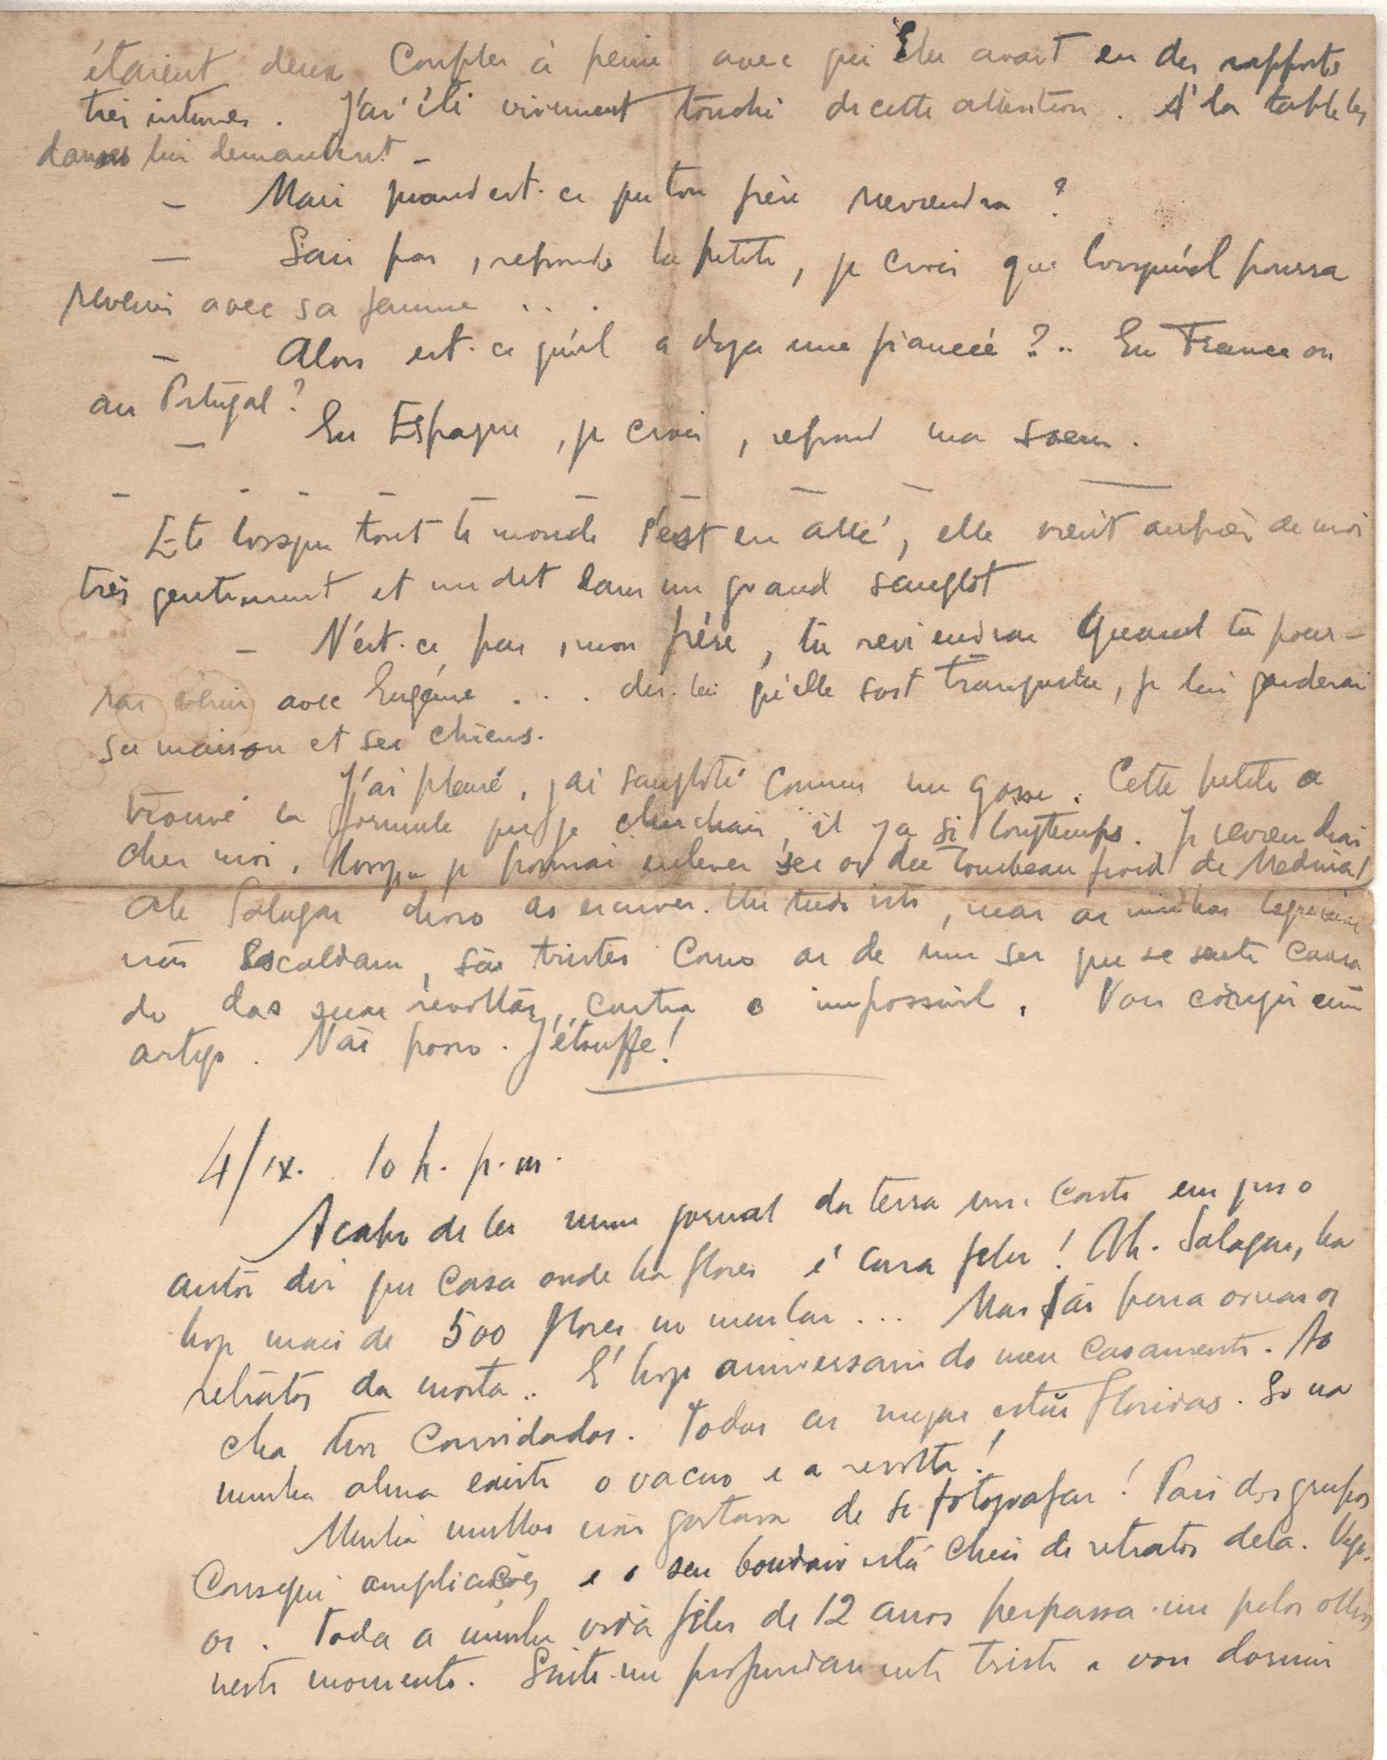 étaient deux couples à peine avec qui Elle avait eu des rapports
très intimes. J'ai été vivement touché de cette attention. A la table les
dames lui demandent –
– Mais quand est-ce que ton frère reviendra ?
– Sais pas, reponds la petite, je crois que lorsqu'il pourra
revenir avec sa femme ...
– Alors est-ce qu'il a deja une fiancée ?.. En France ou
au Portugal ?
– En Espagne, je crois, repond ma soeur.
Et lorsque tout le monde s'est en allé, elle vient auprès de moi
très gentiment et me dit dans un grand sanglot
– N'est-ce pas, mon frère, tu reviendras quand tu pour-
ras venir avec Eugénie ... dis-lui qu'elle soit tranquille, je lui garderai
sa maison et ses chiens.
J'ai pleuré, j'ai sangloté comme un gosse. Cette petite a
trouvé la formule que je cherchais, il y a si longtemps. Je reviendrai
chez moi, lorsque je pourrai enlever ses os du tombeau froid de Medina!
Ah Salazar choro ao escrever-lhe tudo isto, mas as minhas lagrimas
não escaldam, são tristes como as de um ser que se sente cansa
do das suas revoltas, contra o impossivel. Vou corrigir um
artigo. Não posso. J'étouffe!
4/IX. 10 h. p.m.
Acabo de ler num jornal da terra um conto em que o
autôr diz que casa onde ha flores é casa feliz! Ah. Salazar, ha
hoje mais de 500 flores no meu lar... Mas são para ornar os
retratos da morta.. E' hoje aniversario do meu casamento. Ao
cha tive convidados. Todas as mezas estão floridas. So na
minha alma existe o vacuo e a revolta!
Minha mulher não gostava de se fotografar! Pois dos grupos
consegui ampliações e o seu boudoir está cheio de retratos dela. Vejo-
os. Toda a minha vida feliz de 12 anos perpassa-me pelos olhos
neste momento. Sinto-me profundamente triste e vou dormir